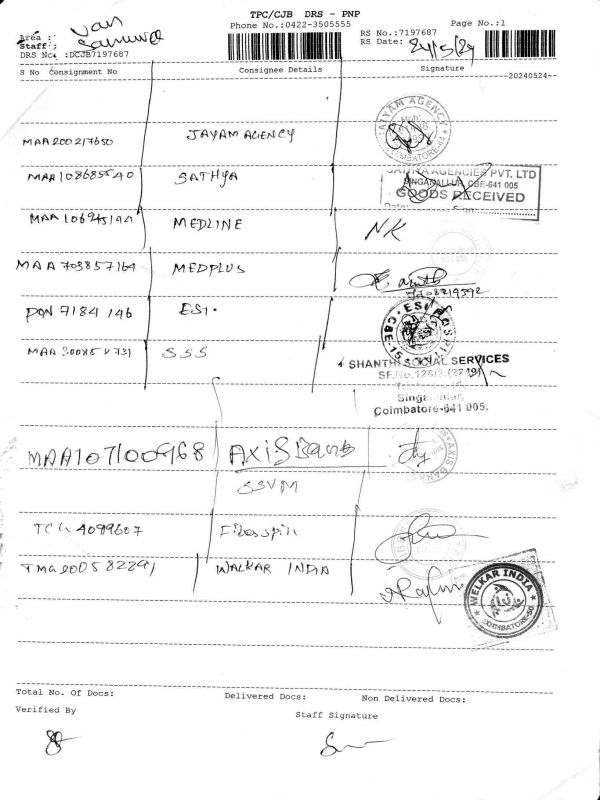 TPC/CJB DRS - PNP
Phone No.:0422-3505555
Page No.:1
Area : Van
Staff: Samuvel
DRS No. :DCJB7197687
RS No.:7197687
RS Date: 24/5/24
S No Consignment No Consignee Details Signature
--20240524--
MAA200217650 JAYAM AGENCY
AIYAM AGENCY
COIMBATORE-44
MAA108685540 SATHYA
SATHYA AGENCIES PVT. LTD
SINGANALLUR, CBE-641 005
GOODS RECEIVED
Date: Sign:
MAA106945144 MEDLINE NK
MAA703857164 MEDPLUS
PON 7184 146 ESI.
ESI HOSPITAL
CBE-15
SSS
SHANTHI SOCIAL SERVICES
Coimbatore-641 005.
MAA107100968 AXIS Bank
AXIS BANK
SSVM
4099607
WALKAR INDIA
WELKAR INDIA
COIMBATORE
Total No. Of Docs: Delivered Docs: Non Delivered Docs:
Verified By Staff Signature